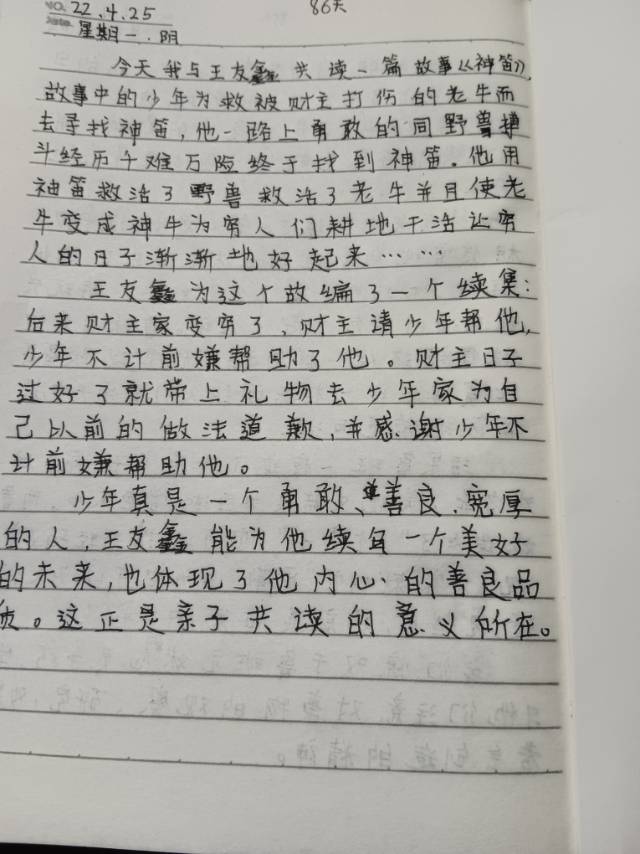 NO. 22.4.25
86天
Date. 星期一.阴
今天我与王友鑫共读一篇故事《神笛》,
故事中的少年为救被财主打伤的老牛而
去寻找神笛,他一路上勇敢的同野兽搏
斗经历千难万险终于找到神笛。他用
神笛救活了野兽救活了老牛并且使老
牛变成神牛为穷人们耕地干活让穷
人的日子渐渐地好起来……
王友鑫为这个故编了一个续集:
后来财主家变穷了,财主请少年帮他,
少年不计前嫌帮助了他。财主日子
过好了就带上礼物去少年家为自
己以前的做法道歉,并感谢少年不
计前嫌帮助他。
少年真是一个勇敢、善良、宽厚
的人,王友鑫能为他续写一个美好
的未来,也体现了他内心的善良品
质。这正是亲子共读的意义所在。